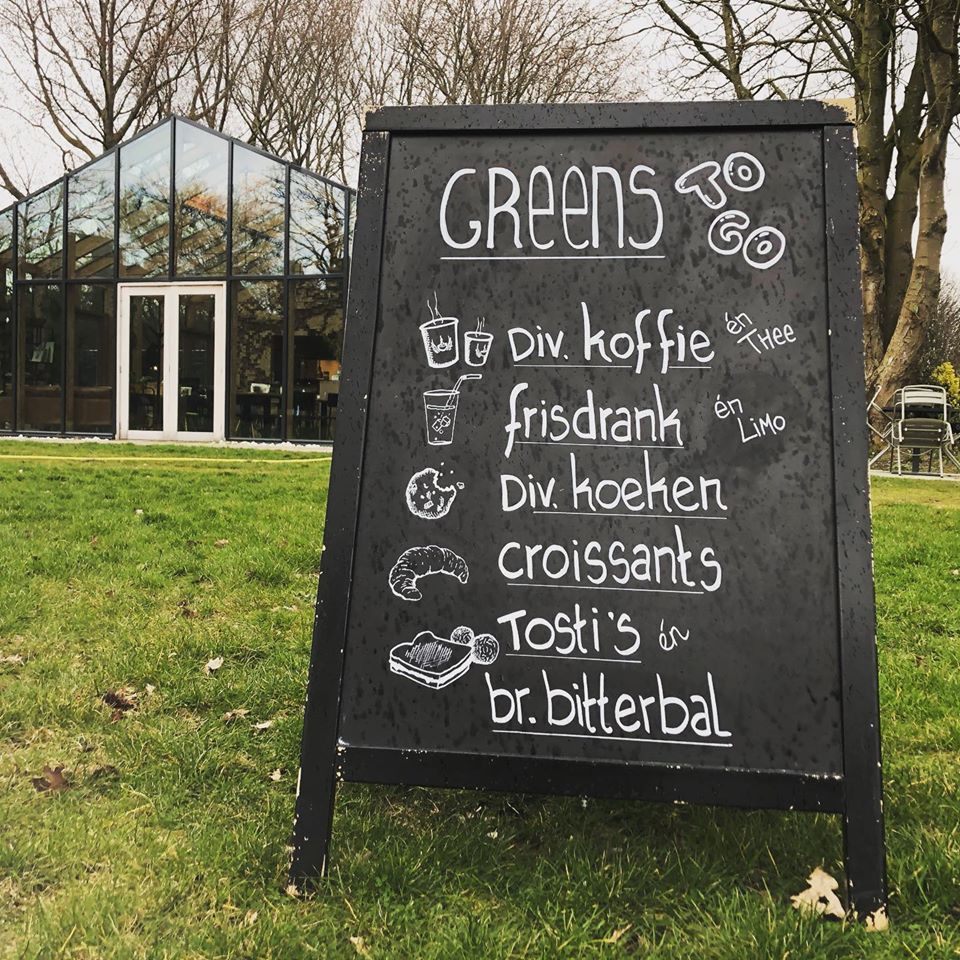 GReens TO GO
Div. koffie én THEE
frisdrank én LiMO
Div. koeken
croissants
Tosti's én
br. bitterbal